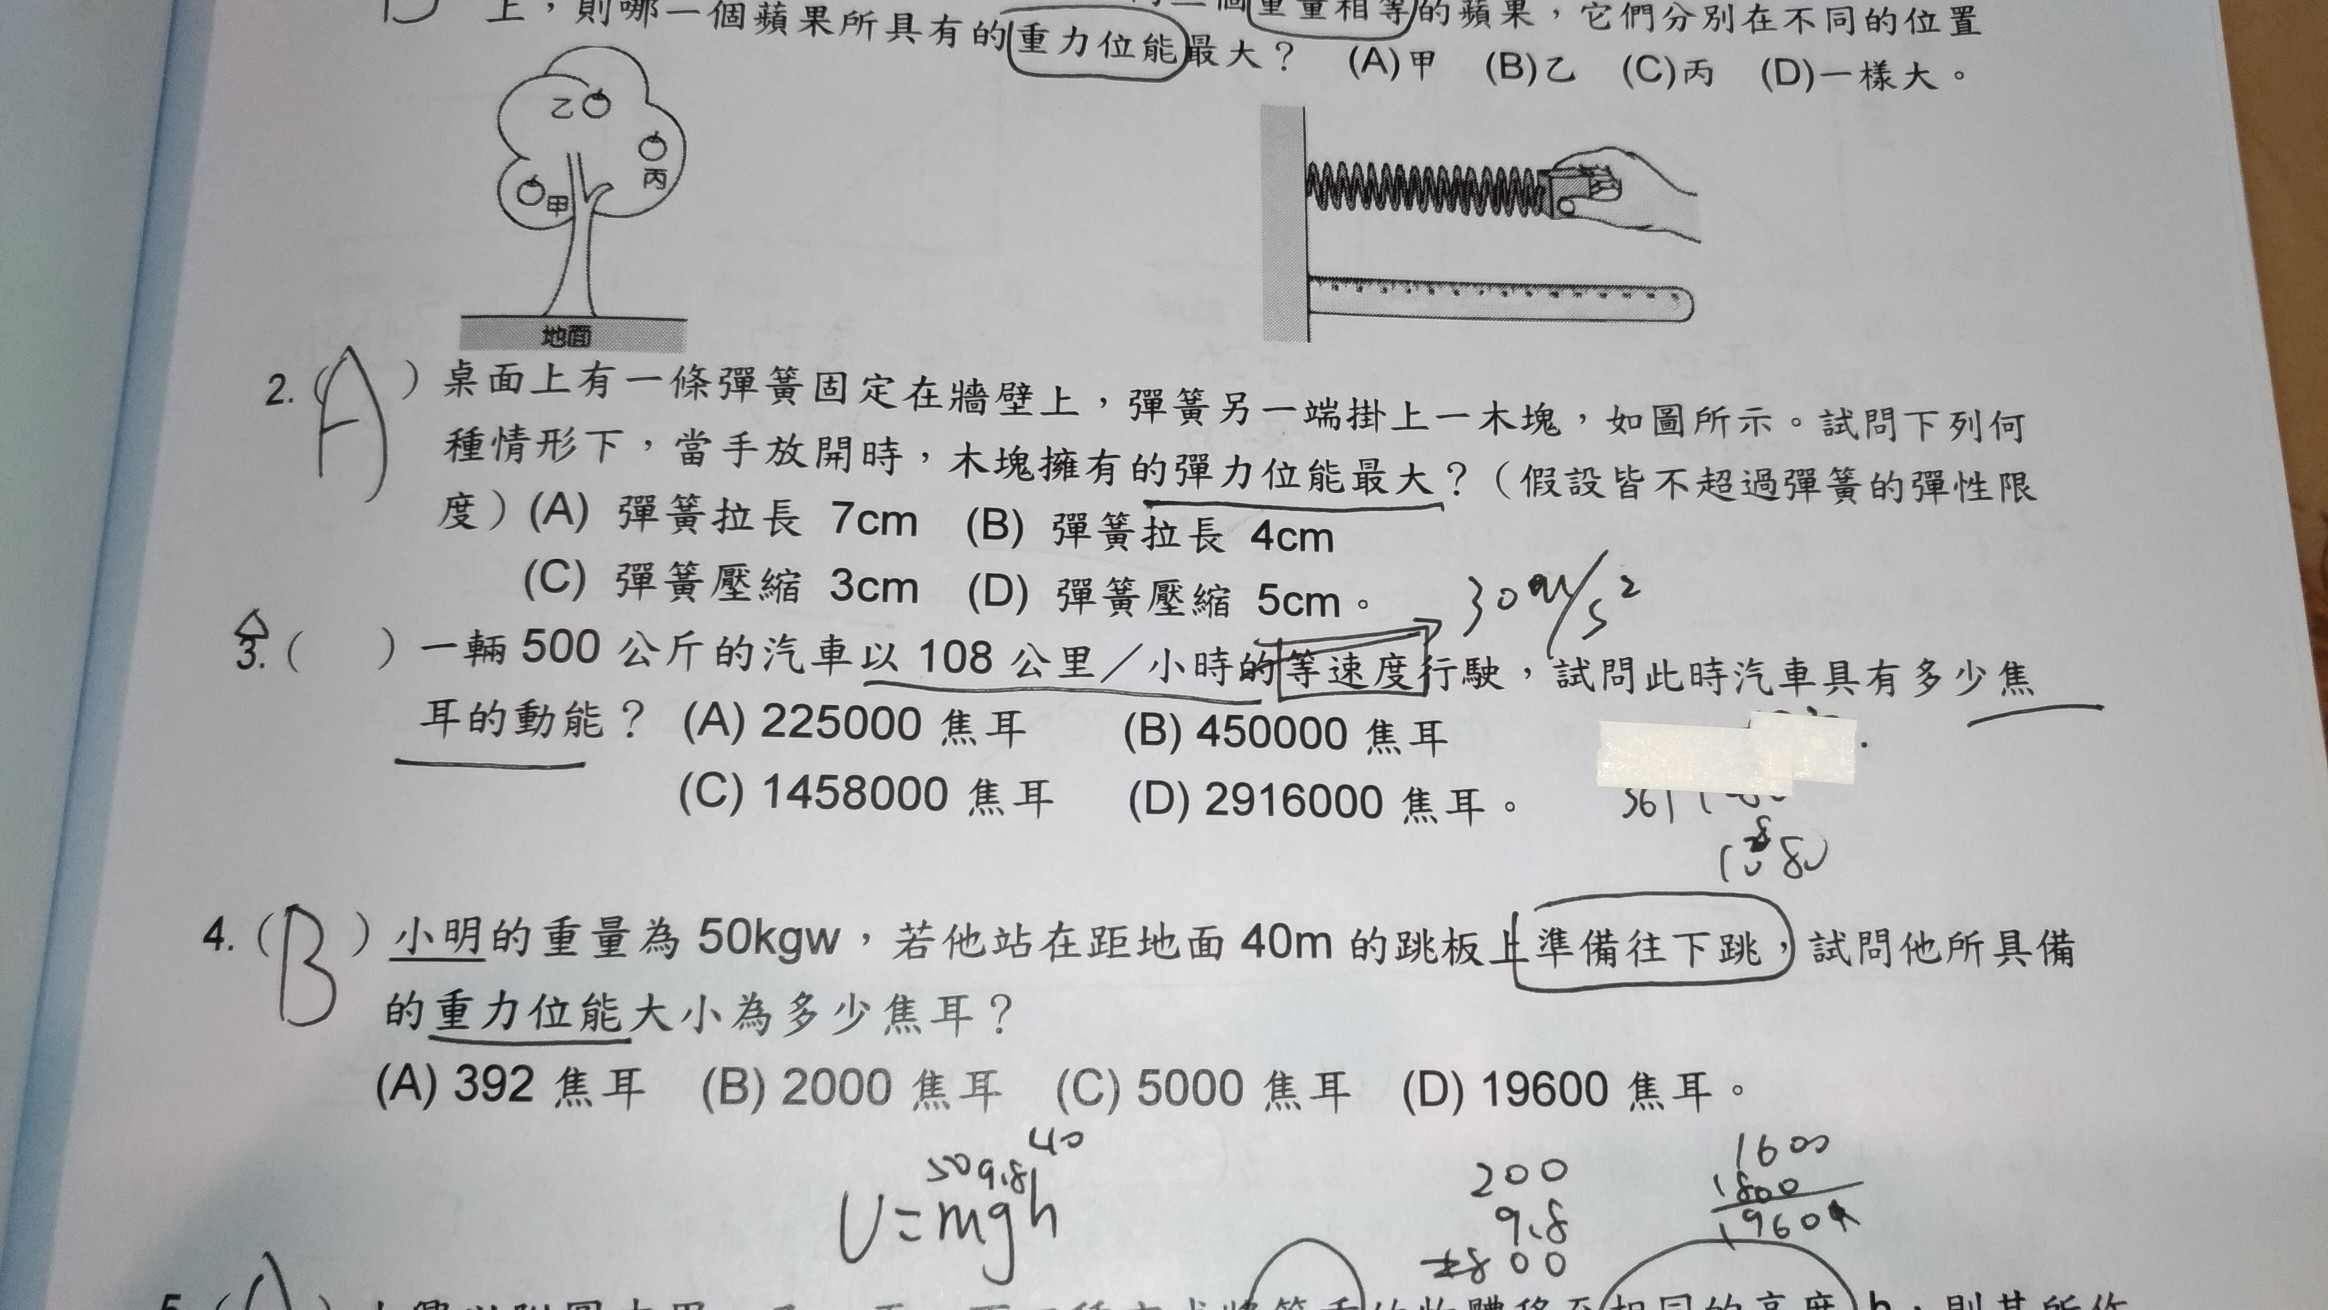 個重量相等的蘋果，它們分別在不同的位置
上，則哪一個蘋果所具有的重力位能最大？ (A)甲 (B)乙 (C)丙 (D)一樣大。
乙
丙
甲
地面
2.(A)桌面上有一條彈簧固定在牆壁上，彈簧另一端掛上一木塊，如圖所示。試問下列何
種情形下，當手放開時，木塊擁有的彈力位能最大？（假設皆不超過彈簧的彈性限
度）(A) 彈簧拉長 7cm (B) 彈簧拉長 4cm
(C) 彈簧壓縮 3cm (D) 彈簧壓縮 5cm。
30m/s²
3.( )一輛 500 公斤的汽車以 108 公里／小時的等速度行駛，試問此時汽車具有多少焦
耳的動能？ (A) 225000 焦耳 (B) 450000 焦耳
(C) 1458000 焦耳 (D) 2916000 焦耳。
1080
4.(B)小明的重量為 50kgw，若他站在距地面 40m 的跳板上準備往下跳，試問他所具備
的重力位能大小為多少焦耳？
(A) 392 焦耳 (B) 2000 焦耳 (C) 5000 焦耳 (D) 19600 焦耳。
50 9.8 40
U=mgh
200
9.8
1600
1800
1960
5.